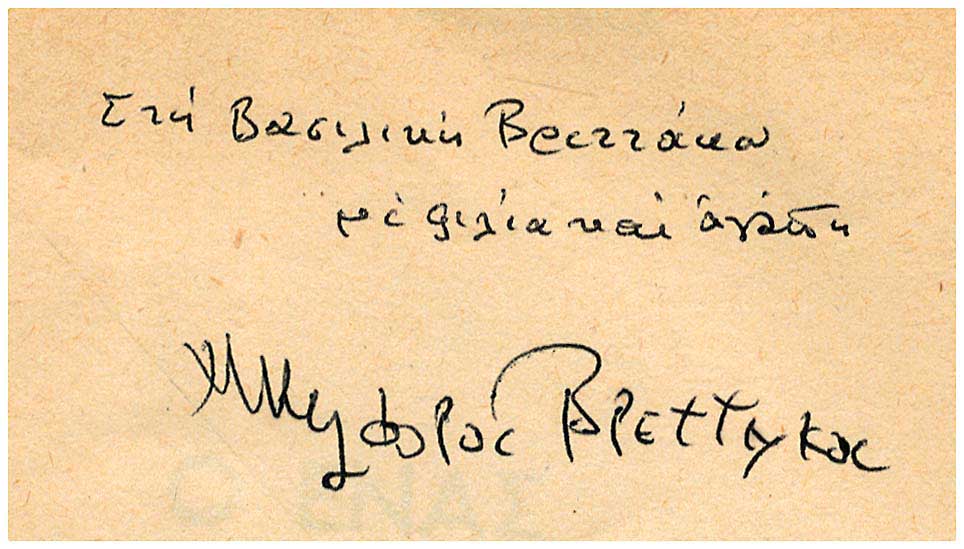 Στή Βασιλική Βρεττάκου
μέ φιλία καί ἀγάπη
Νικηφόρος Βρεττάκος
Ο ΕΝΑΣ